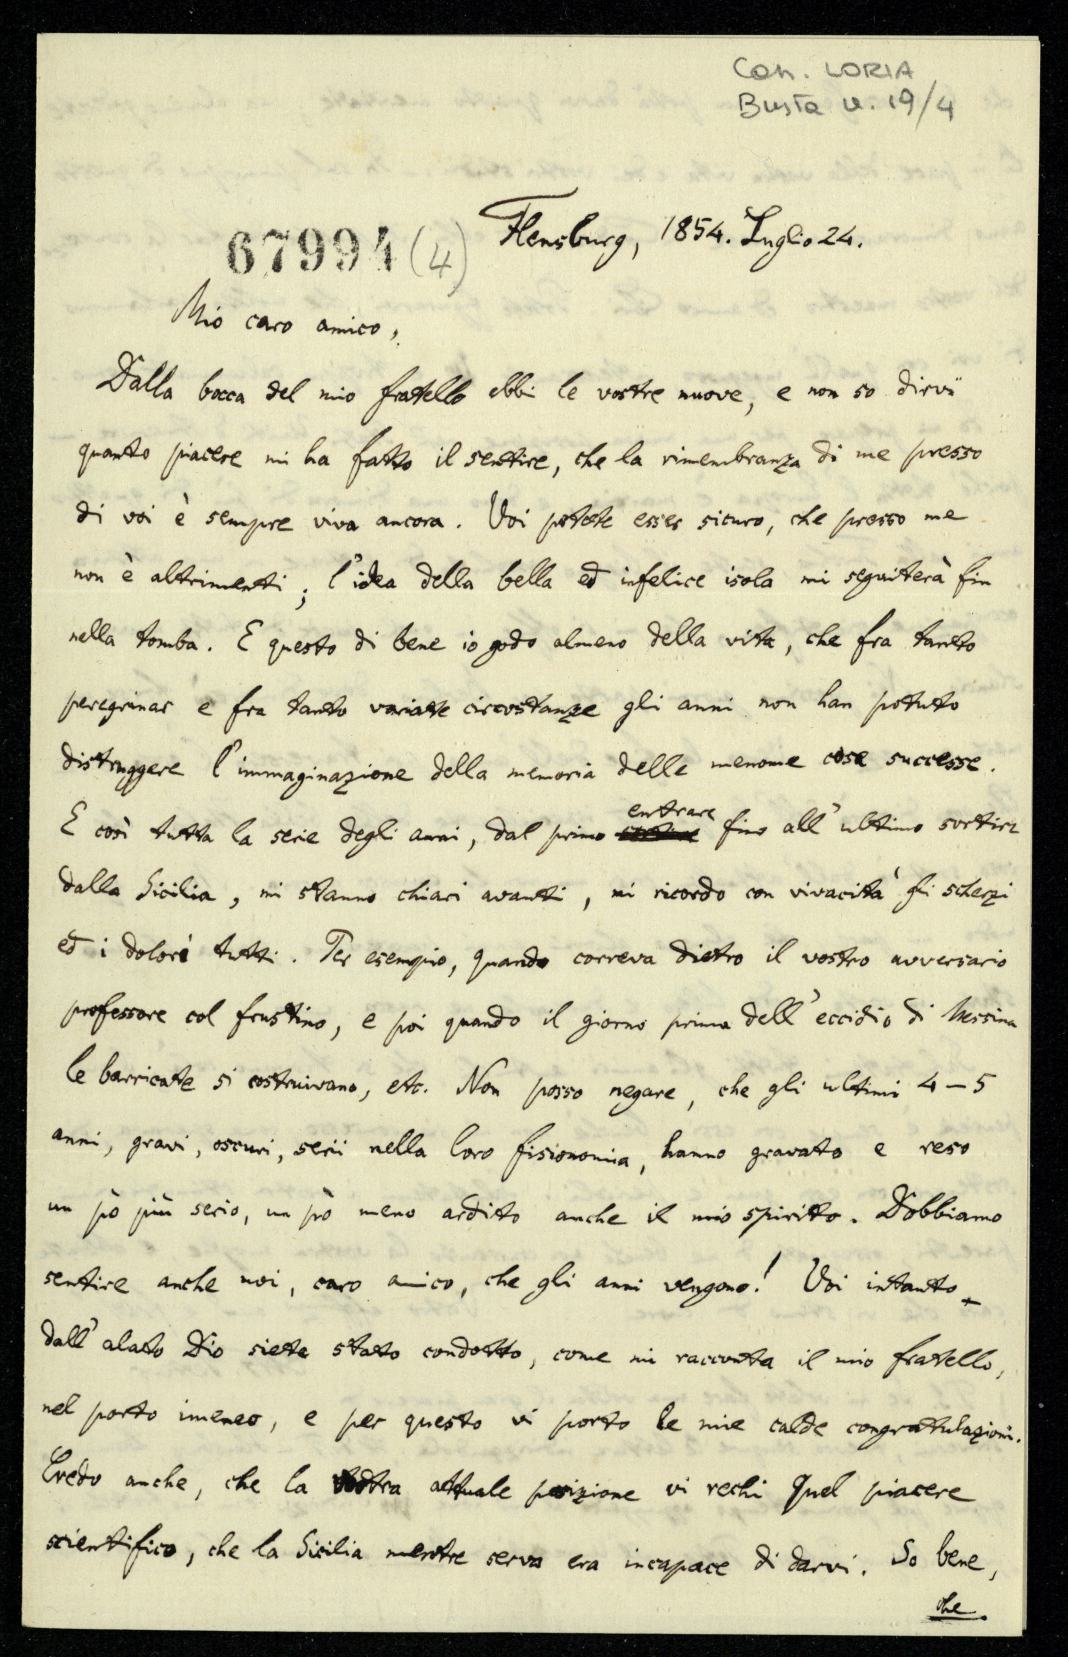 Con. LORIA
Busta n. 19/4
67994 (4)
Flensburg, 1854. Luglio 24.
Mio caro amico,
Dalla bocca del mio fratello ebbi le vostre nuove, e non so dirvi
quanto piacere mi ha fatto il sentire, che la rimembranza di me presso
di voi è sempre viva ancora. Voi potete esser sicuro, che presso me
non è altrimenti; l'idea della bella ed infelice isola mi seguiterà fin
nella tomba. E questo di bene io godo almeno della vita, che fra tanto
peregrinar e fra tanto variate circostanze gli anni non han potuto
distruggere l'immaginazione della memoria delle menome cose successe.
E così tutta la serie degli anni, dal primo entrare fino all'ultimo sortire
dalla Sicilia, mi stanno chiari avanti, mi ricordo con vivacità gli scherzi
ed i dolori tutti. Per esempio, quando correva dietro il vostro avversario
professore col frustino, e poi quando il giorno prima dell'eccidio di Messina
le barricate si costruivano, etc. Non posso negare, che gli ultimi 4–5
anni, gravi, oscuri, serii nella loro fisionomia, hanno gravato e reso
un pò più serio, un pò meno ardito anche il mio spirito. Dobbiamo
sentire anche noi, caro amico, che gli anni vengono! Voi intanto
dall'alato Dio siete stato condotto, come mi racconta il mio fratello,
nel porto imeneo, e per questo vi porto le mie calde congratulazioni.
Credo anche, che la vostra attuale posizione vi rechi quel piacere
scientifico, che la Sicilia mentre serva era incapace di darvi. So bene,
che